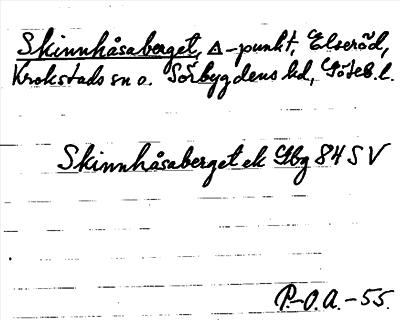 Skinnhåsaberget, Δ-punkt, Elseröd,
Krokstads sn o. Sörbygdens hd, Göteb. l.
Skinnhåsaberget ek Gbg 84 SV
P.-O.A.-55.